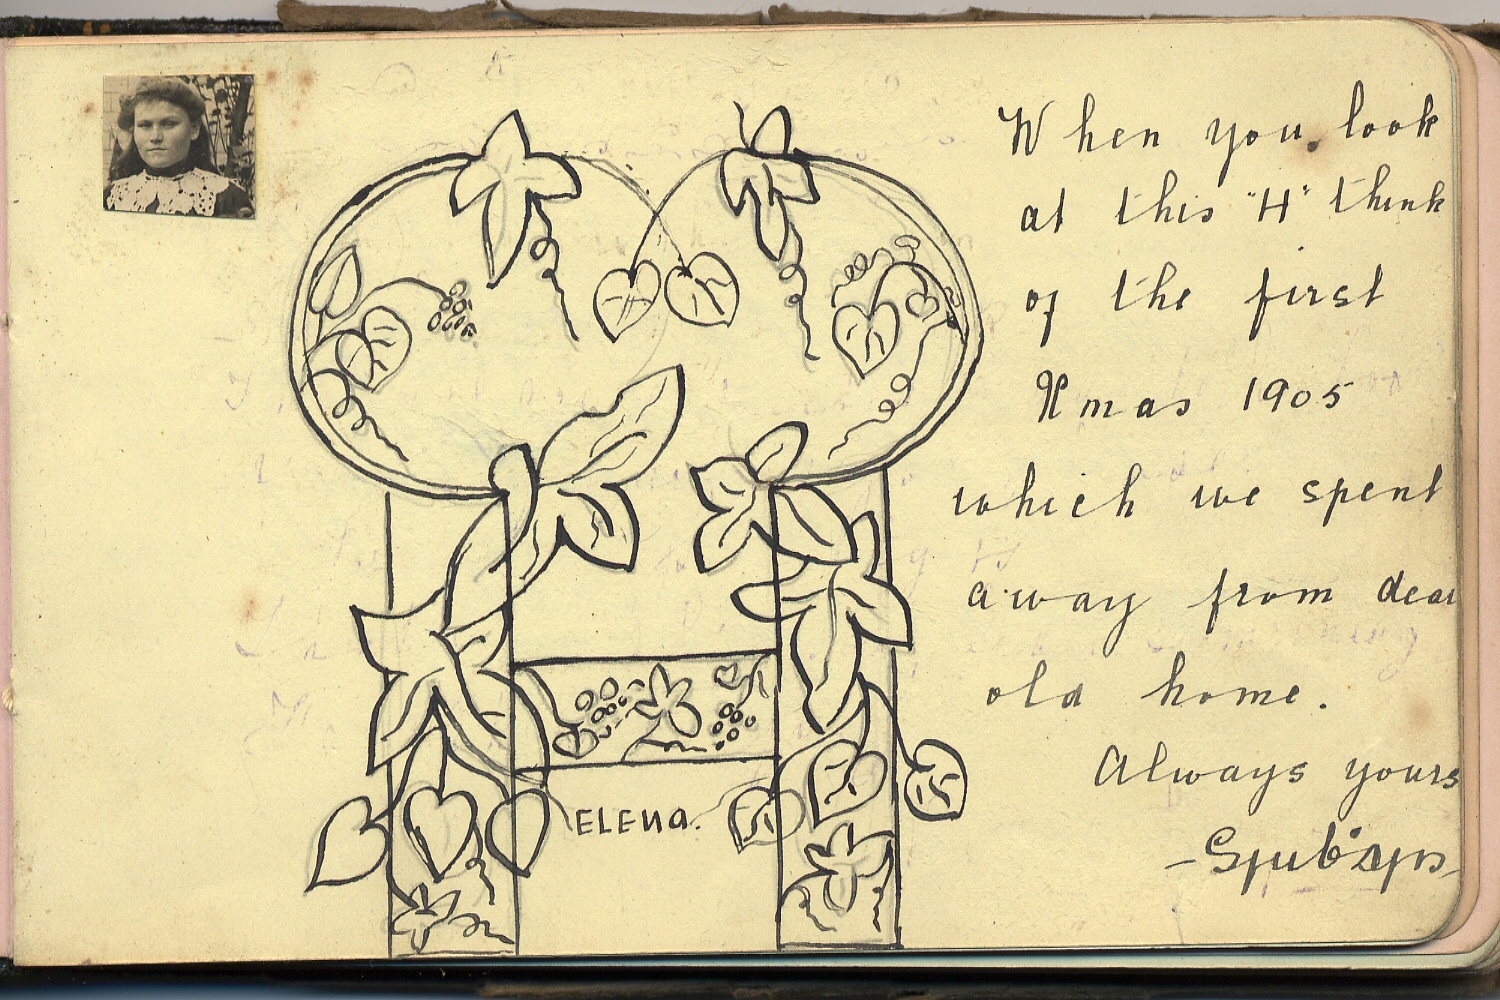 When you look
at this "H" think
of the first
Xmas 1905
which we spent
away from dear
old home.
Always yours
ELENA.